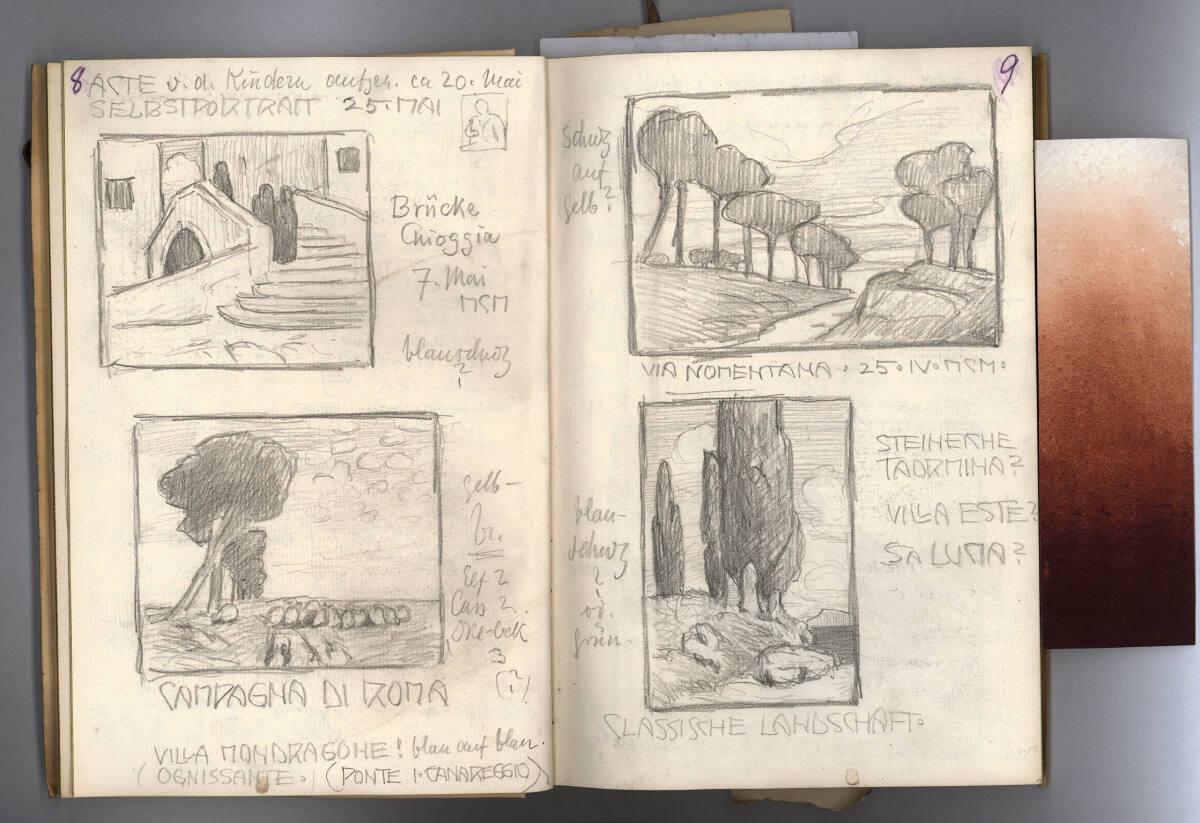 8
ACTE v. d. Kindern aufgen. ca 20. Mai
SELBSTPORTRAIT 25. MAI
Brücke
Chioggia
7. Mai
MCM
blauschwz
?
gelb-
br.
3
(?)
CAMPAGNA DI ROMA
VILLA MONDRAGONE! blau auf blau.
(OGNISSANTE.) (PONTE I. CANAREGGIO)
9
Schwz
auf
gelb?
VIA NOMENTANA · 25 · IV · MCM ·
STEINERNE
TAORMINA?
VILLA ESTE?
SA LUCIA?
blau-
schwz
?
od.
grün-
CLASSISCHE LANDSCHAFT.